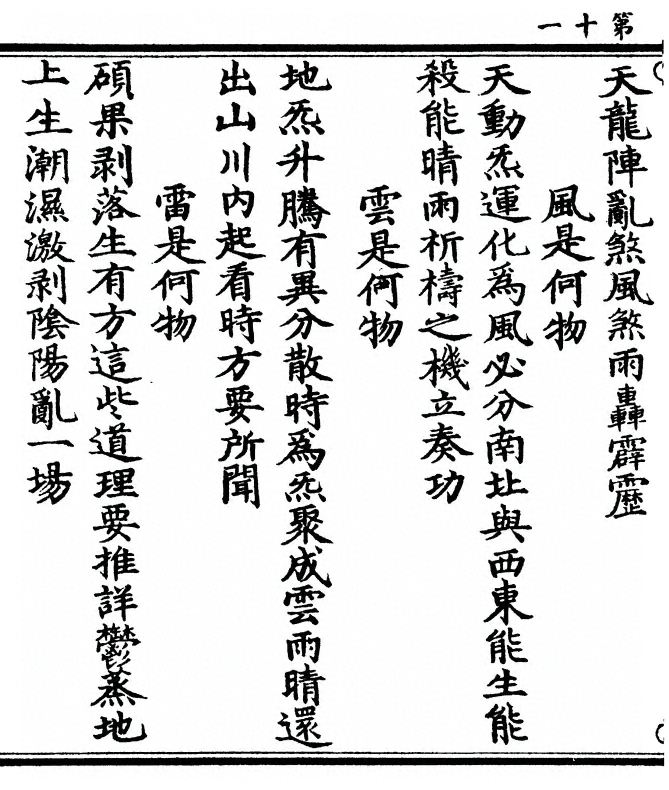 第十一
天龍陣亂煞風煞雨轟霹靂
風是何物
天動炁運化為風必分南北與西東能生能
殺能晴雨祈禱之機立奏功
雲是何物
地炁升騰有異分散時為炁聚成雲雨晴還
出山川內起看時方要所聞
雷是何物
碩果剥落生有方這些道理要推詳鬱蒸地
上生潮濕激剥陰陽亂一場